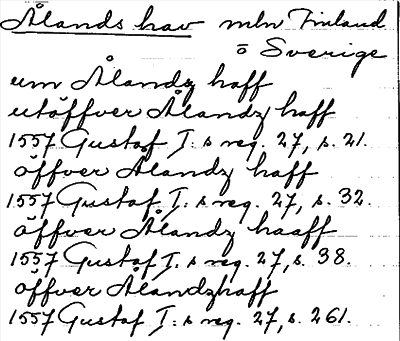 Ålands hav mln Finland
o Sverige
um Ålandz haff
utöffver Ålandz haff
1557 Gustaf I:s reg. 27, s. 21.
öffver Ålandz haff
1557 Gustaf I:s reg. 27, s. 32.
öffver Ålandz haaff
1557 Gustaf I:s reg. 27, s. 38.
öffver Ålandzhaff
1557 Gustaf I:s reg. 27, s. 261.